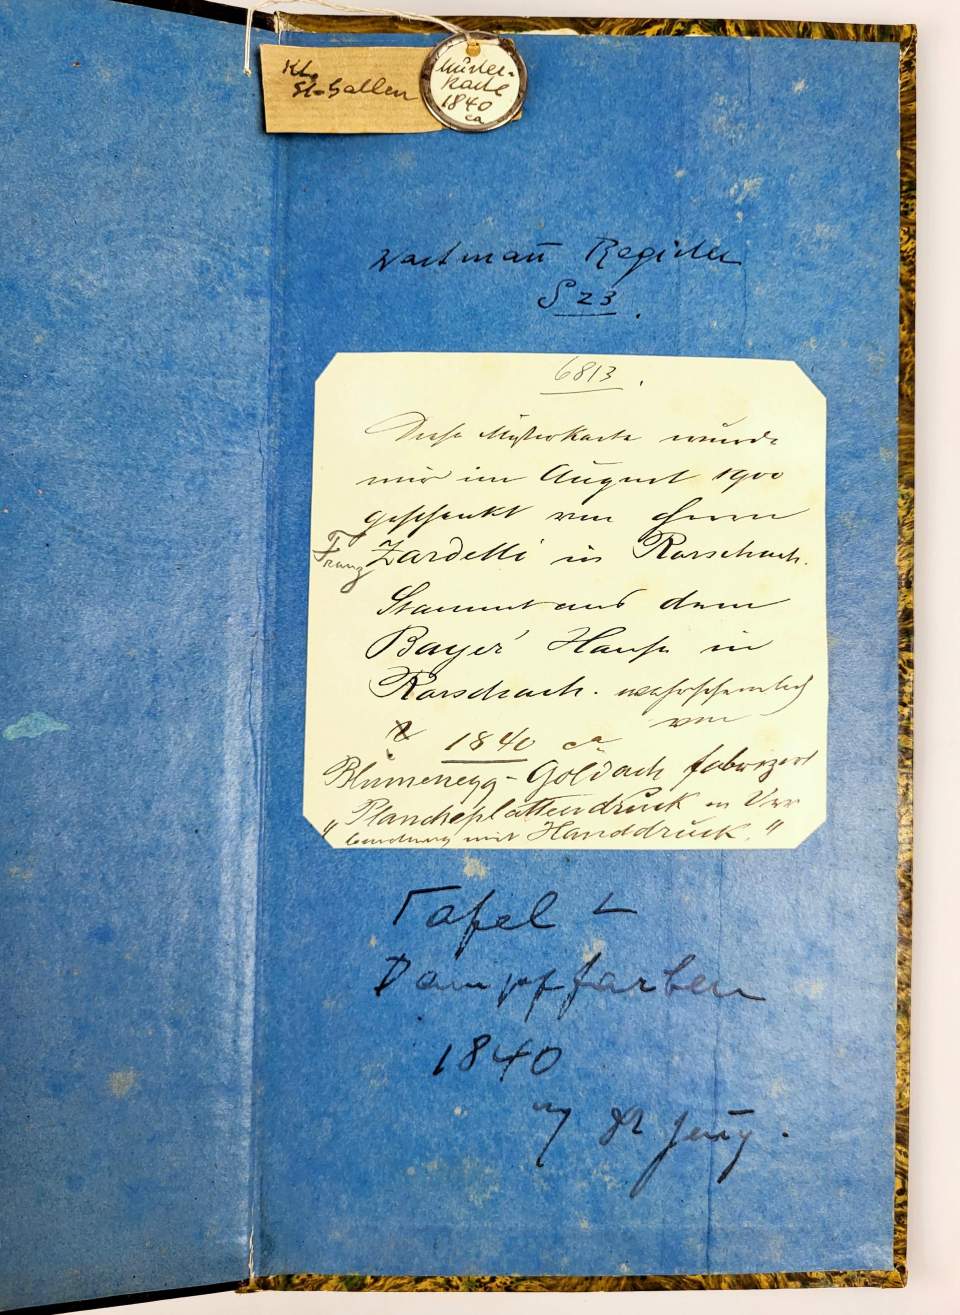 Kt.
St. Gallen
Muster-
karte
1840
ca
Wartmann Register
S 23.
6813.
Diese Musterkarte wurde
mir im August 1900
geschenkt von Herrn
Franz Zardetti in Rorschach.
Stammt aus dem
Bayer' Hause in
Rorschach. wahrscheinlich
von
1840 ca
Blumenegg-Goldach fabriziert
"Plancheplattendruck in Ver
bindung mit Handdruck."
Tafel
Dampffarben
1840
Dr Jenny.